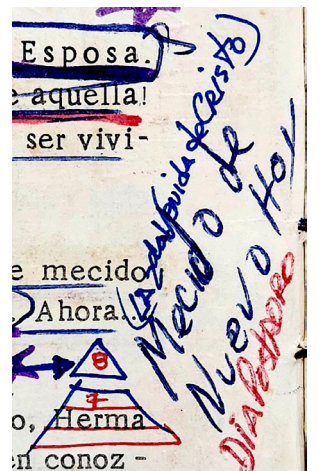 Esposa.
e aquella!
ser vivi-
e mecido
Ahora..
8
7
o, Herma
en conoz-
(La edad vida de Cristo)
Mecido de
Nuevo Hoy
Dia Postrero